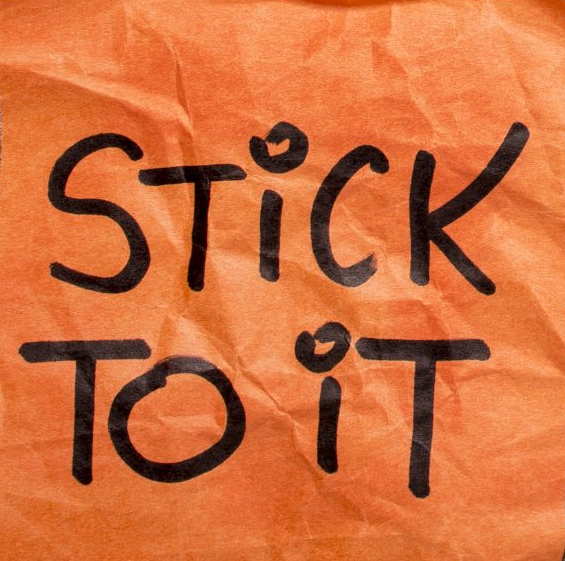 STiCK
TO iT